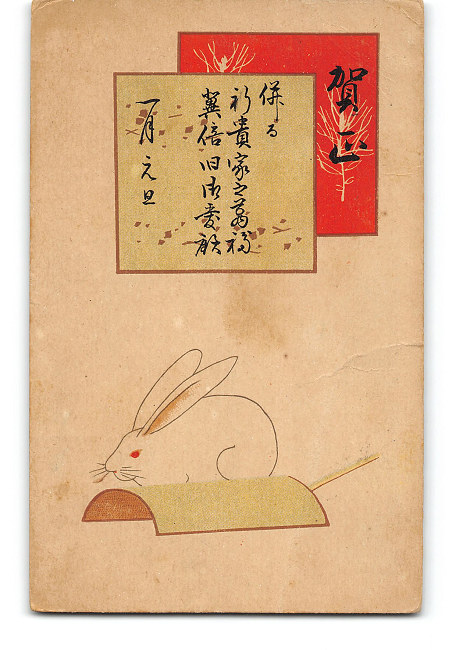 賀正
併而
祈貴家之萬福
冀倍旧御愛顧
一月元旦